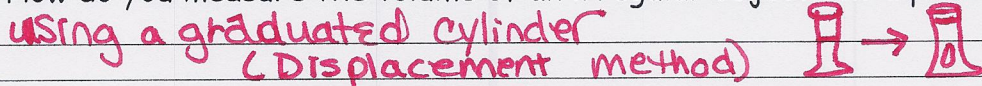 using a graduated cylinder
(Displacement method)